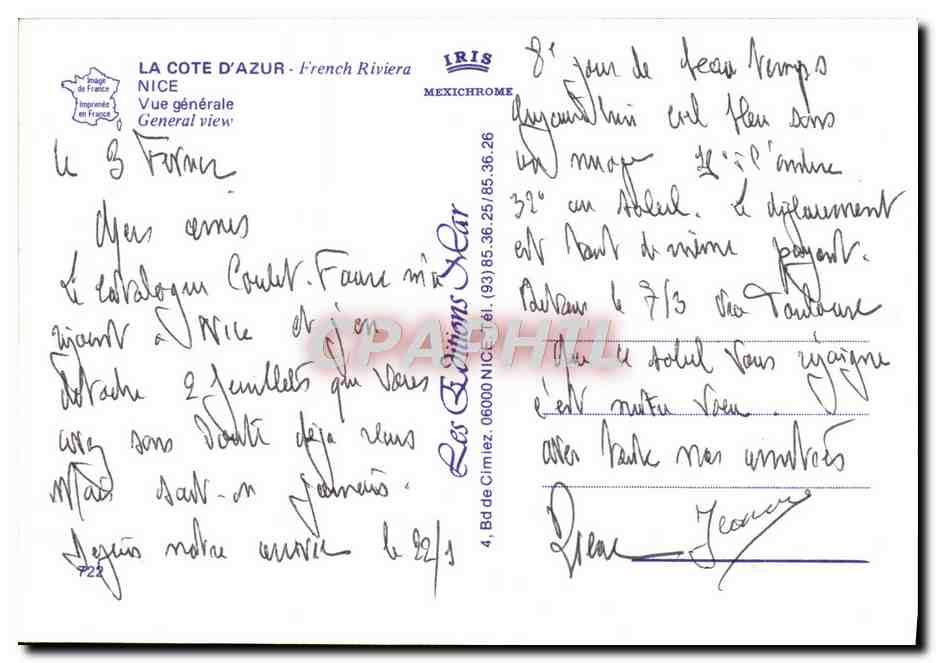 Image
de France
Imprimée
en France
LA COTE D'AZUR - French Riviera
NICE
Vue générale
General view
IRIS
MEXICHROME
Les Editions Mar
4, Bd de Cimiez, 06000 NICE. Tél. (93) 85.36.25/85.36.26
722
CPAPHIL
le 3 Fevrier
Chers amis
Le catalogue Coulet-Faure m'a
rejoint à Nice et j'en
détache 2 feuillets que vous
avez sans doute déjà reçus
Mais sait-on jamais.
Depuis notre arrivée le 22/1
8e jour de beau temps
Aujourd'hui ciel bleu sans
un nuage à l'ombre
32° au soleil. Le déplacement
est tout de même payant.
Retour le 7/3 via Toulouse
Que le soleil vous rejoigne
c'est notre voeu.
avec toutes nos amitiés
Pierre Jeanne